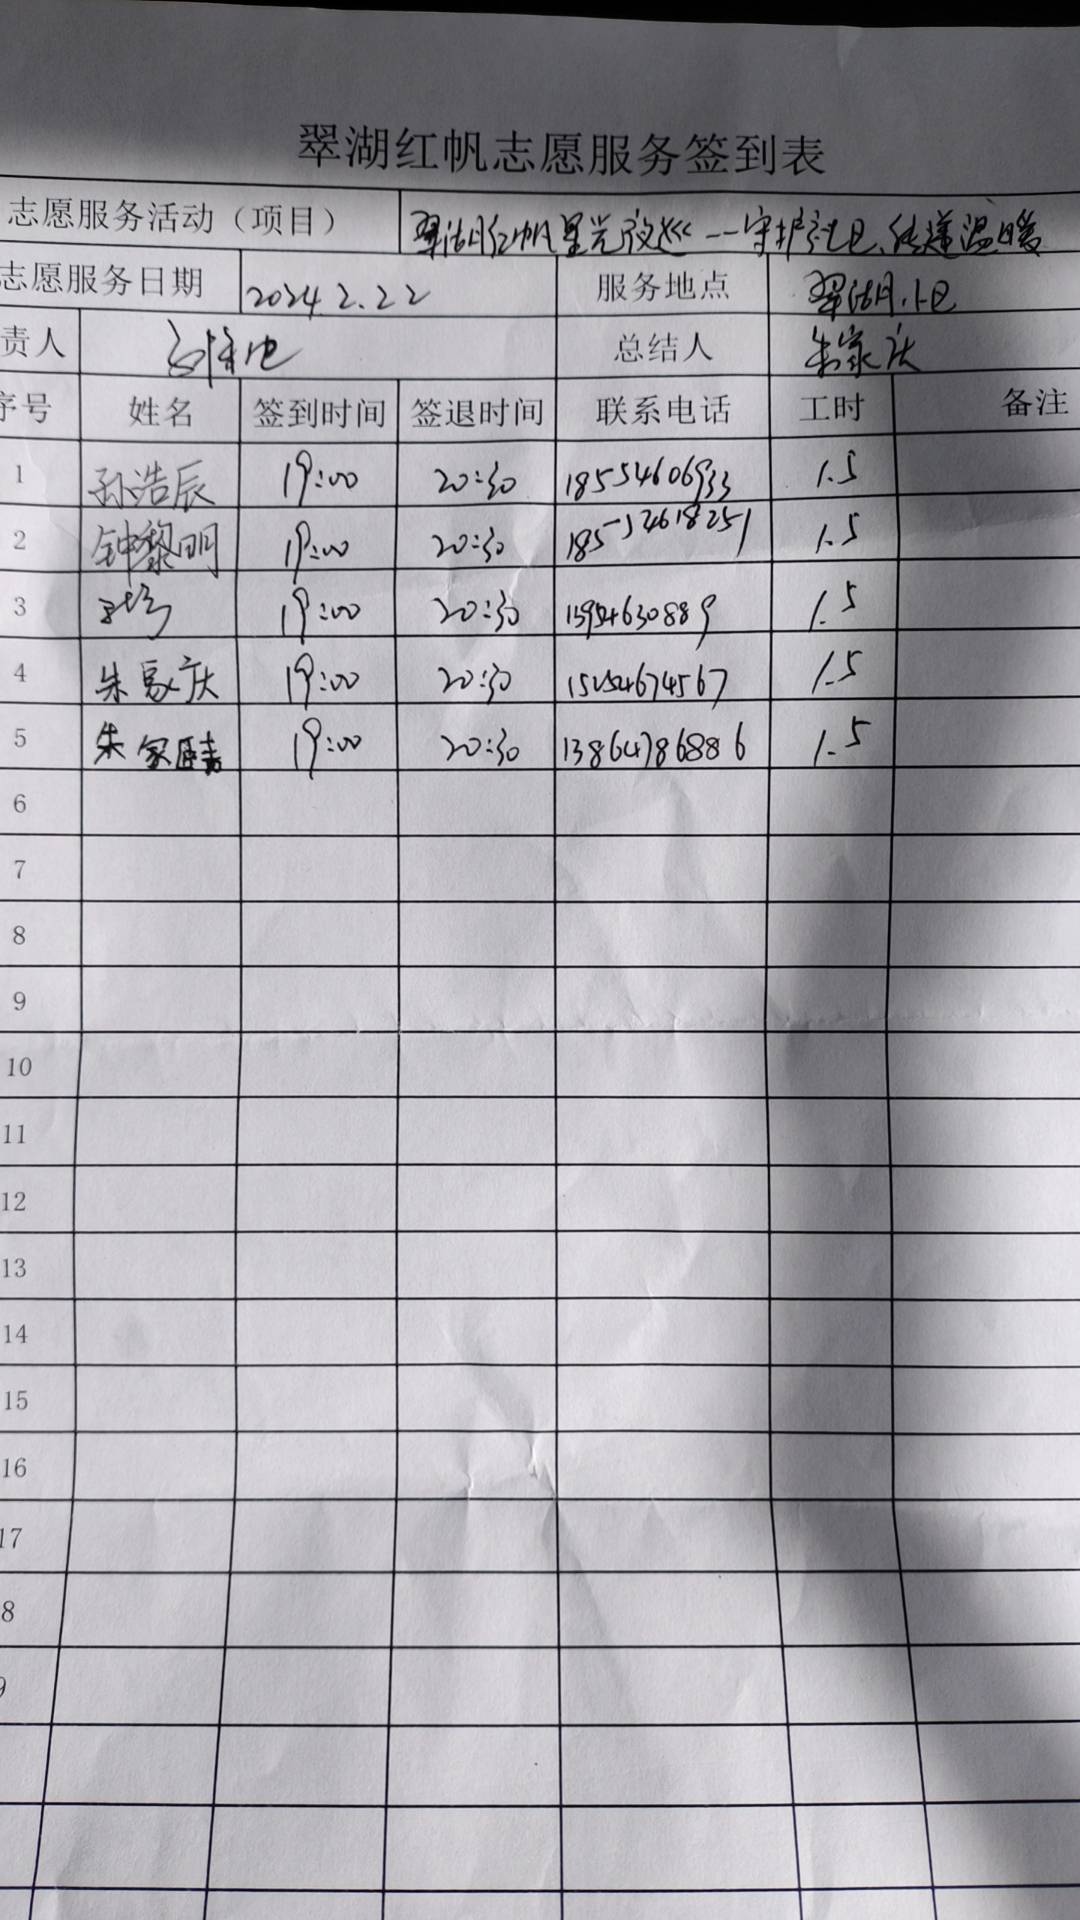 翠湖红帆志愿服务签到表
志愿服务活动（项目） 翠湖红帆星光夜巡--守护社区、传递温暖
志愿服务日期 2024.2.22 服务地点 翠湖小区
责人 总结人 朱家庆
序号 姓名 签到时间 签退时间 联系电话 工时 备注
1 孙浩辰 19:00 20:30 18554606933 1.5
2 钟黎明 19:00 20:30 1.5
3 19:00 20:30 1.5
4 朱家庆 19:00 20:30 1.5
5 朱家 19:00 20:30 13864786886 1.5
6
7
8
9
10
11
12
13
14
15
16
17
8
9